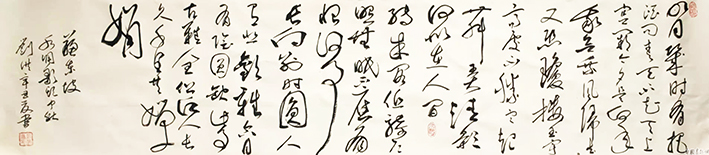 明月幾时有把
酒问青天不知天上
宫闕今夕是何年
我欲乘风归去
又恐瓊楼玉宇
高處不勝寒起
舞弄清影
何似在人间
转朱阁低绮户
照無眠不应有
恨何事
长向别时圆人
有悲歡離合月
有陰圆缺此事
古難全但願人长
久千里共婵
娟
蘇東坡
水调歌头中秋
劉洪辛丑